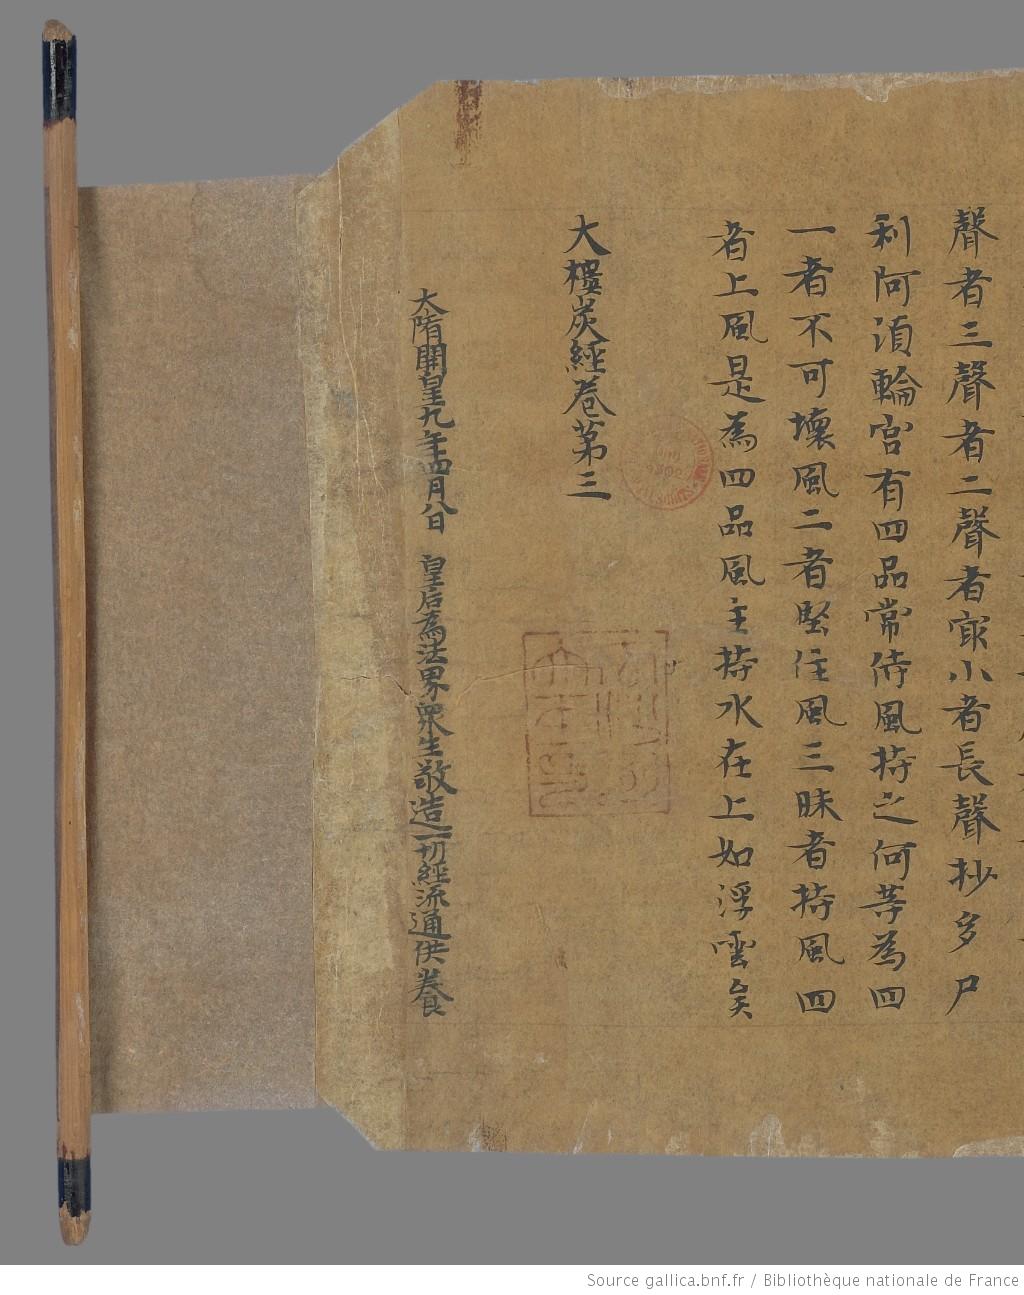 聲者三聲者二聲者寂小者長聲抄多尸
利阿湏輪宮有四品常倚風持之何等為四
一者不可壞風二者堅住風三昧者持風四
者上風是為四品風主持水在上如浮雲矣
大樓炭經卷第三
大隋開皇九年四月八日 皇后為法界衆生敬造一切經流通供養
Source gallica.bnf.fr / Bibliothèque nationale de France